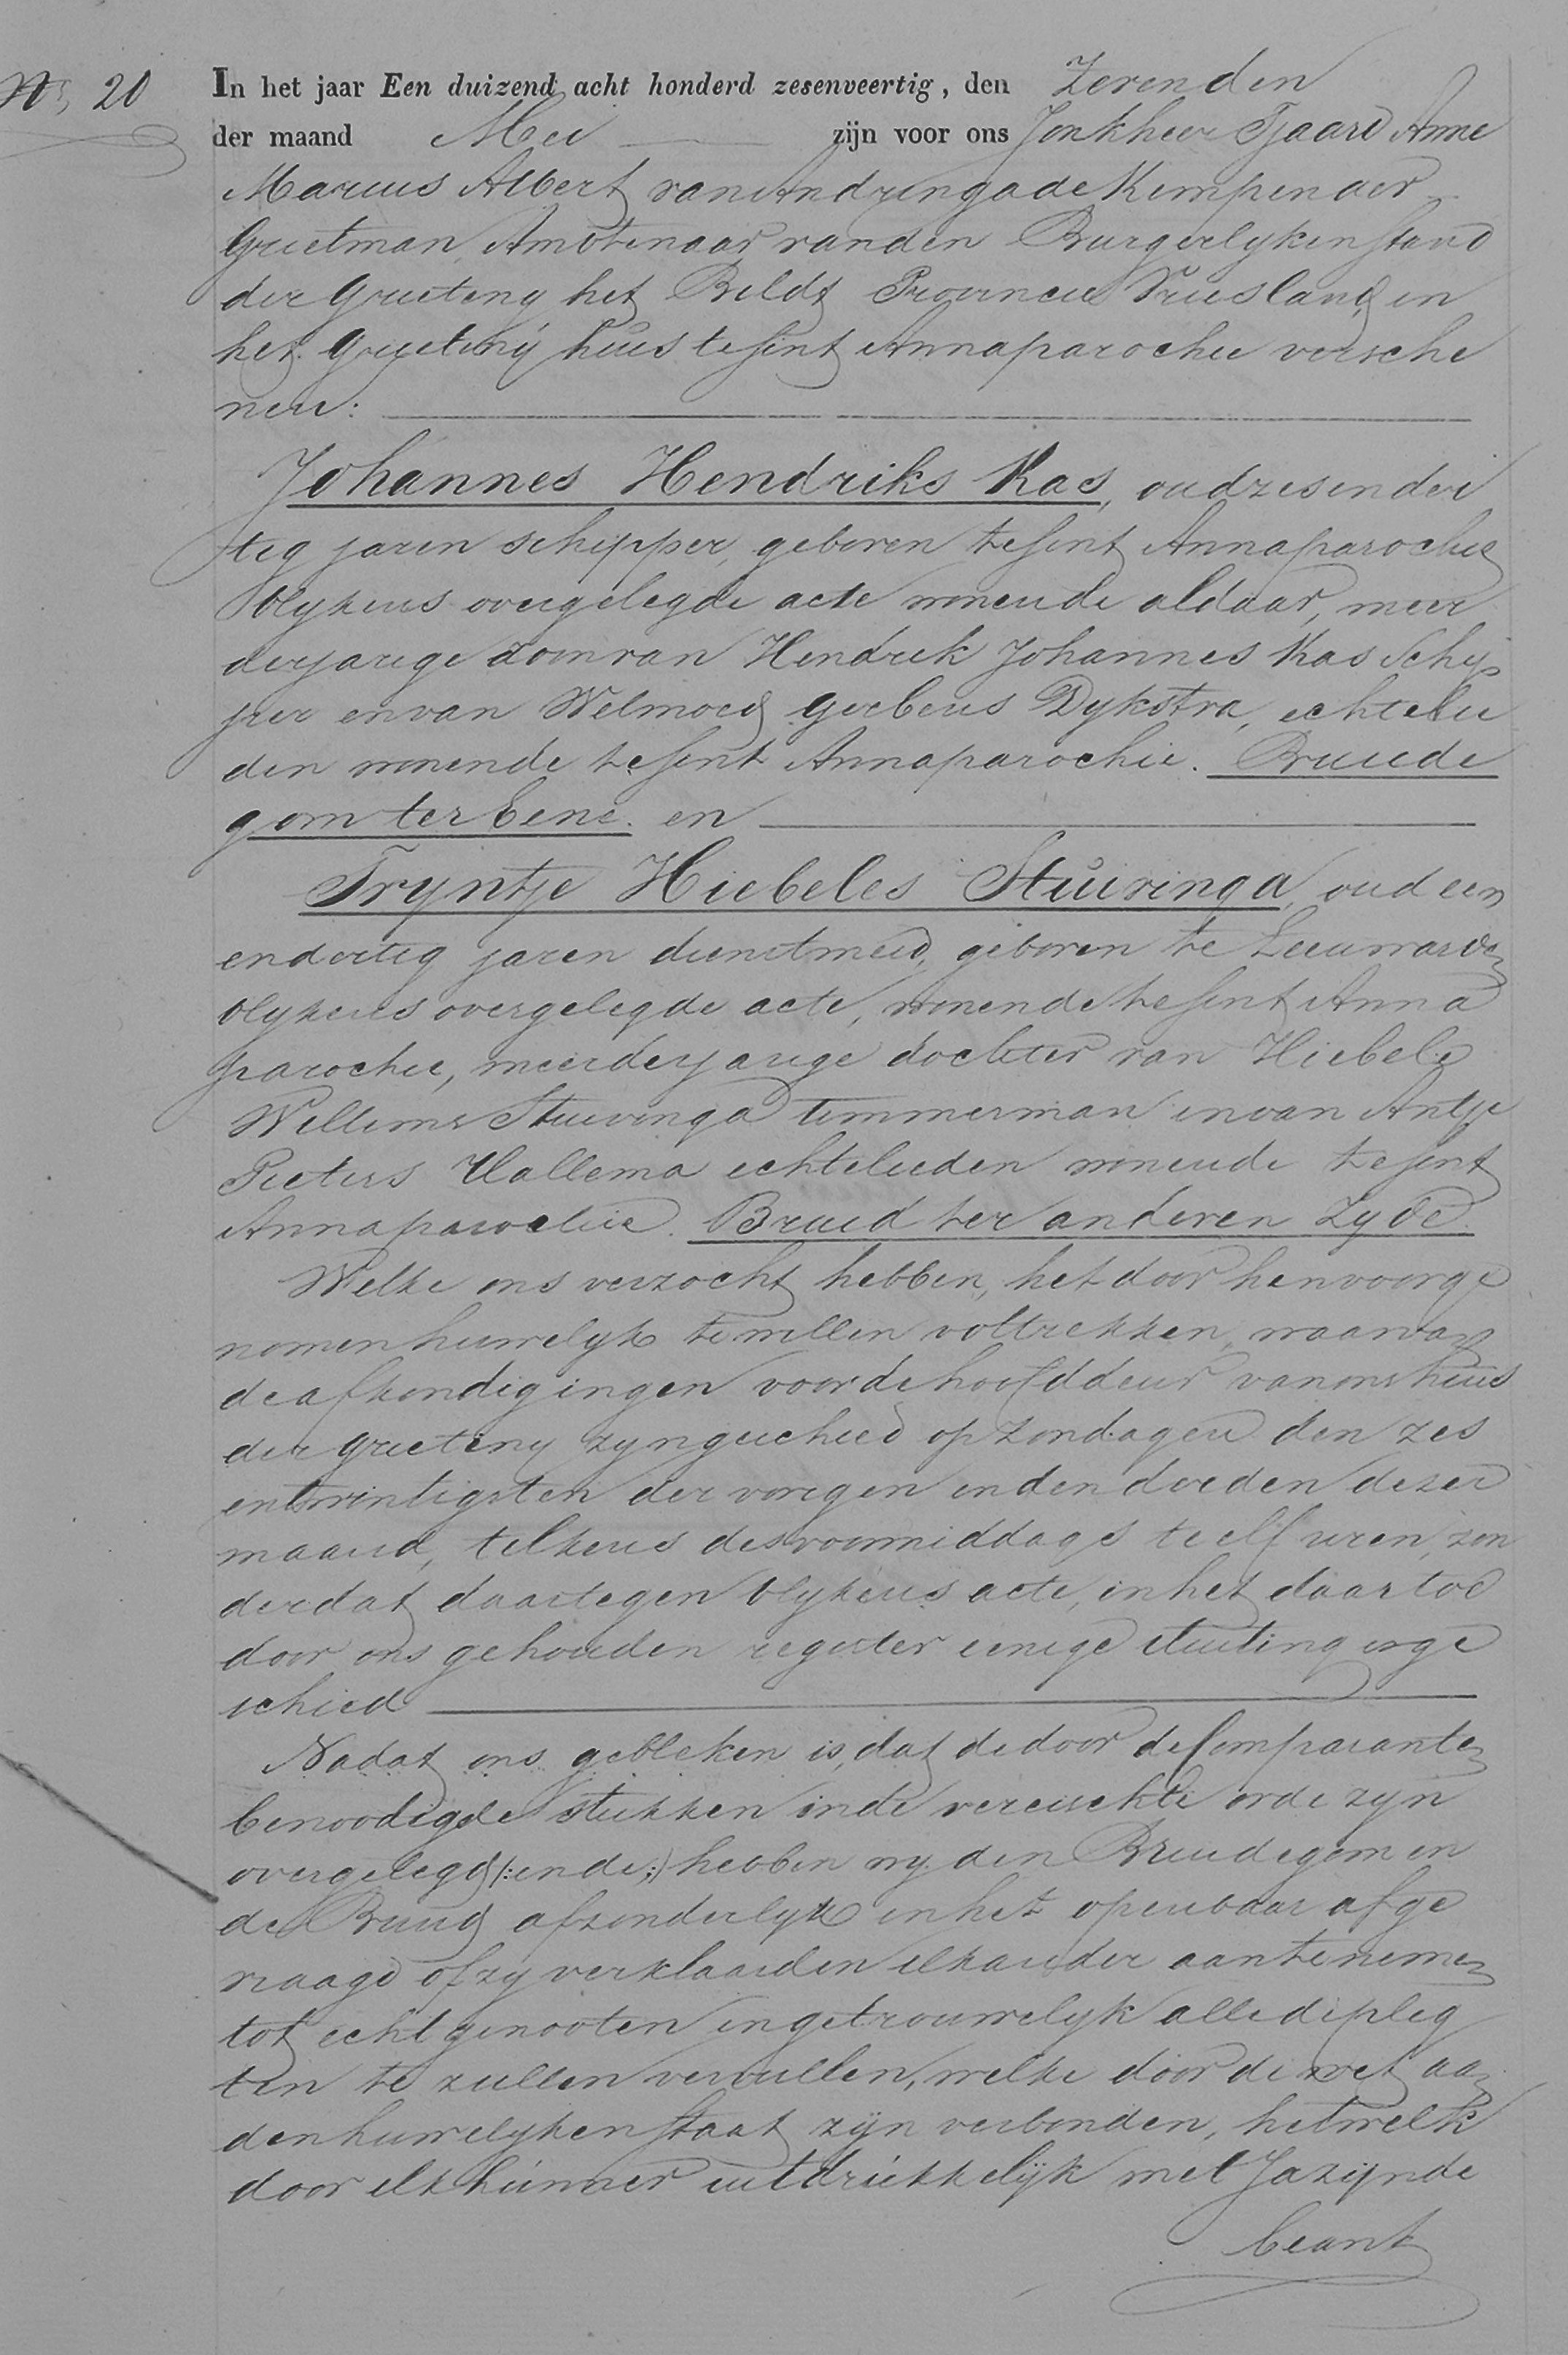 No, 20
In het jaar Een duizend acht honderd zesenveertig, den Zevenden
der maand Mei zijn voor ons Jonkheer Tjaard Anne
Marius Albert van Andringa de Kempenaer
Grietman, Ambtenaar van den Burgerlyken stand
der Grieteny het Bildt Provincie Vriesland, in
het Grieteny huis te sint Annaparochie versche
nen:
Johannes Hendriks Kas, oud zes en der
tig jaren schipper, geboren te sint Annaparochie
blykens overgelegde acte wonende aldaar, meer
derjarige zoon van Hendrik Johannes Kas Schip
per en van Welmoed Gerbens Dykstra, echtelie
den wonende te sint Annaparochie. Bruide
gom ter Eene. en
Tryntje Hiebeles Stuivinga, oud een
en dertig jaren dienstmeid, geboren te Leeuwarden
blykens overgelegde acte, wonende te sint Anna
parochie, meerderjarige dochter van Hiebele
Willems Stuivinga timmerman en van Antje
Pieters Hallema echtelieden wonende te sint
Annaparochie. Bruid ter anderen Zyde.
Welke ons verzocht hebben, het door hen voorge
nomen huwelyk te willen voltrekken, waarvan
de afkondigingen voor de hoofddeur van ons huis
der Grieteny zyn geschied op Zondagen den zes
entwintigsten der vorigen en den derden dezer
maand, telkens des voormiddags te elf uren, zon
der dat daartegen blykens acte, in het daartoe
door ons gehouden register eenige stuiting is ge
schied
Nadat ons gebleken is, dat de door de Comparanten
benoodigde stukken in de vereischte orde zyn
overgelegd (: ende :) hebben wy den Bruidegom en
de Bruid afzonderlyk in het openbaar afge
vraagd of zy verklaarden elkander aan te nemen
tot echtgenooten en getrouwelyk alle de plig
ten te zullen vervullen, welke door de wet aan
den huwelyken staat zyn verbonden, hetwelk
door elk hunner uitdrukkelijk met Ja zijnde
beant